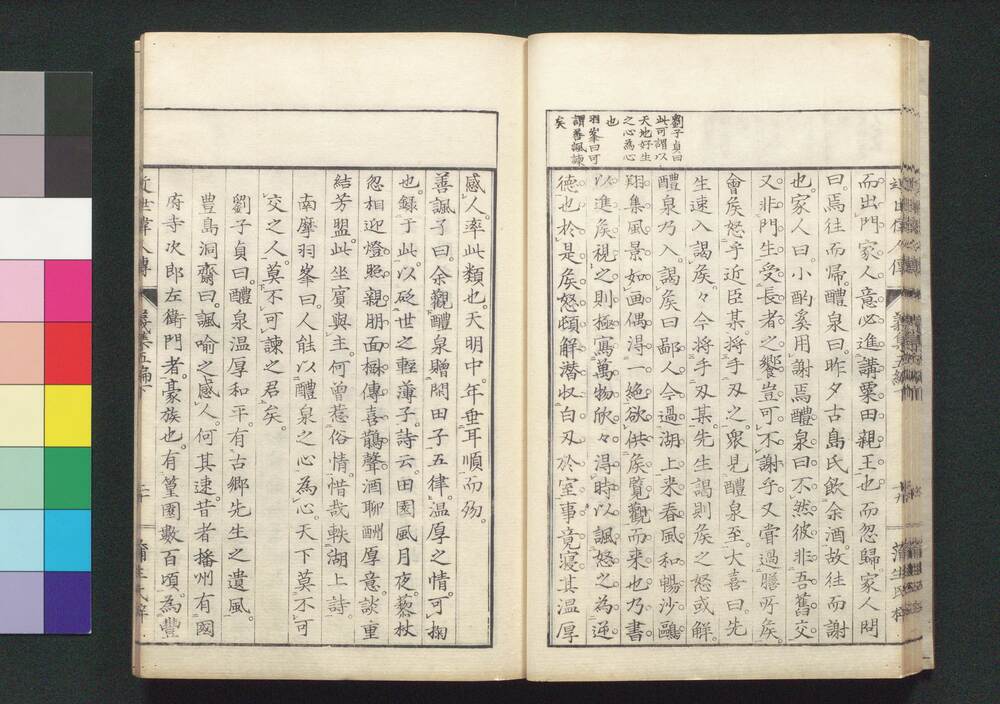 劉子貞曰
此可謂以
天地好生
之心為心
也
羽峯曰可
謂善諷諫
矣
而出門家人意必進講粟田親王也而忽歸家人問
曰焉往而帰醴泉曰昨夕古島氏飲余酒故往而謝
也家人曰小酌奚用謝焉醴泉曰不然彼非吾舊交
又非門生受長者之饗豈可不謝乎又嘗過膳所矦
會矦怒乎近臣某将手刃之衆見醴泉至大喜曰先
生速入謁矦々今将手刃某先生謁則矦之怒或解
醴泉乃入謁矦曰鄙人今過湖上来春風和暢沙鷗
翔集風景如画偶得一絶欲供矦覧觀而来也乃書
以進矦視之則極寫萬物欣々得時以諷怒之為逆
德也於是矦怒頓解潜收白刃於室事竟寝其温厚
感人率此類也天明中年垂耳順而歿
善諷子曰余觀醴泉贈閑田子五律温厚之情可掬
也録于此以砭世之輕薄子詩云田園風月夜藜杖
忽相迎燈照親朋面樹傳喜鵲聲酒聊酬厚意談重
結芳盟此坐賓與主何曾惹俗情惜哉軼湖上詩
南摩羽峯曰人能以醴泉之心為心天下莫不可
交之人莫不可諫之君矣
劉子貞曰醴泉温厚和平有古郷先生之遺風
豊島洞齋曰諷喻之感人何其速昔者播州有國
府寺次郎左衛門者豪族也有篁園數百頃為豐
近世偉人傳
義集五編下
蒲生氏梓